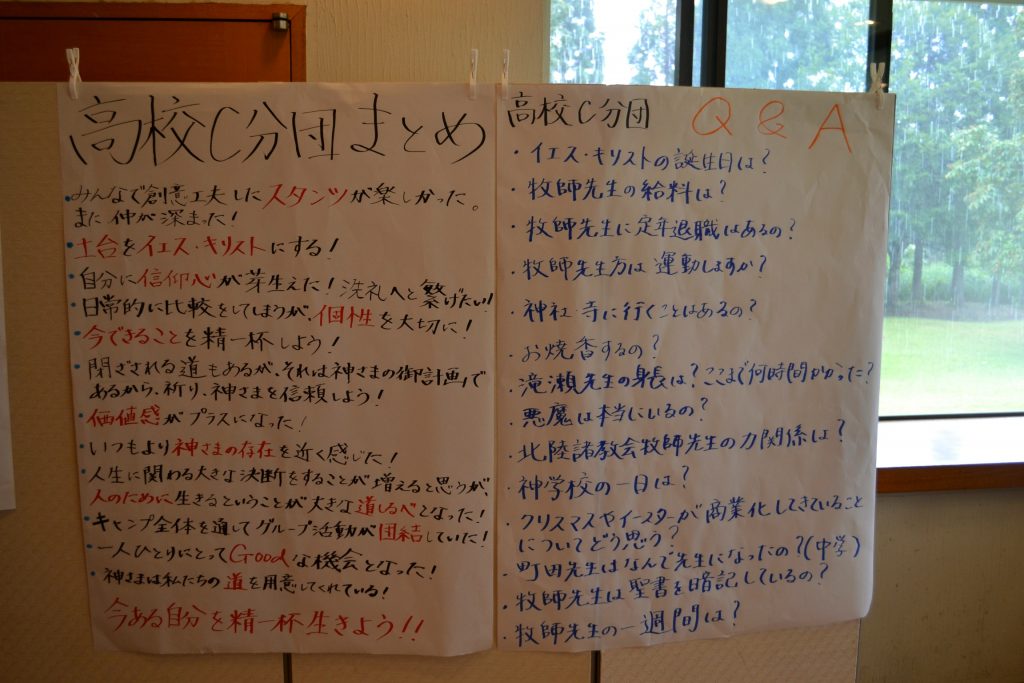 高校C分団まとめ
・みんなで創意工夫したスタンツが楽しかった。
また仲が深まった!
・土台をイエス・キリストにする!
・自分に信仰心が芽生えた!洗礼へと繋げたい!
・日常的に比較をしてしまうが、個性を大切に!
・今できることを精一杯しよう!
・閉ざされる道もあるが、それは神さまの御計画で
あるから、祈り、神さまを信頼しよう!
・価値感がプラスになった!
・いつもより神さまの存在を近く感じた!
・人生に関わる大きな決断をすることが増えると思うが、
人のために生きるということが大きな道しるべとなった!
・キャンプ全体を通してグループ活動が団結していた!
・一人ひとりにとってGoodな機会となった!
・神さまは私たちの道を用意してくれている!
今ある自分を精一杯生きよう!!
高校C分団 Q & A
・イエス・キリストの誕生日は?
・牧師先生の給料は?
・牧師先生に定年退職はあるの?
・牧師先生方は運動しますか?
・神社・寺に行くことはあるの?
・お焼香するの?
・滝瀬先生の身長は?ここまで何時間かかった?
・悪魔は本当にいるの?
・北陸諸教会牧師先生の力関係は?
・神学校の一日は?
・クリスマスやイースターが商業化してきていること
についてどう思う?
・町田先生はなんで先生になったの?(中学)
・牧師先生は聖書を暗記しているの?
・牧師先生の一週間は?